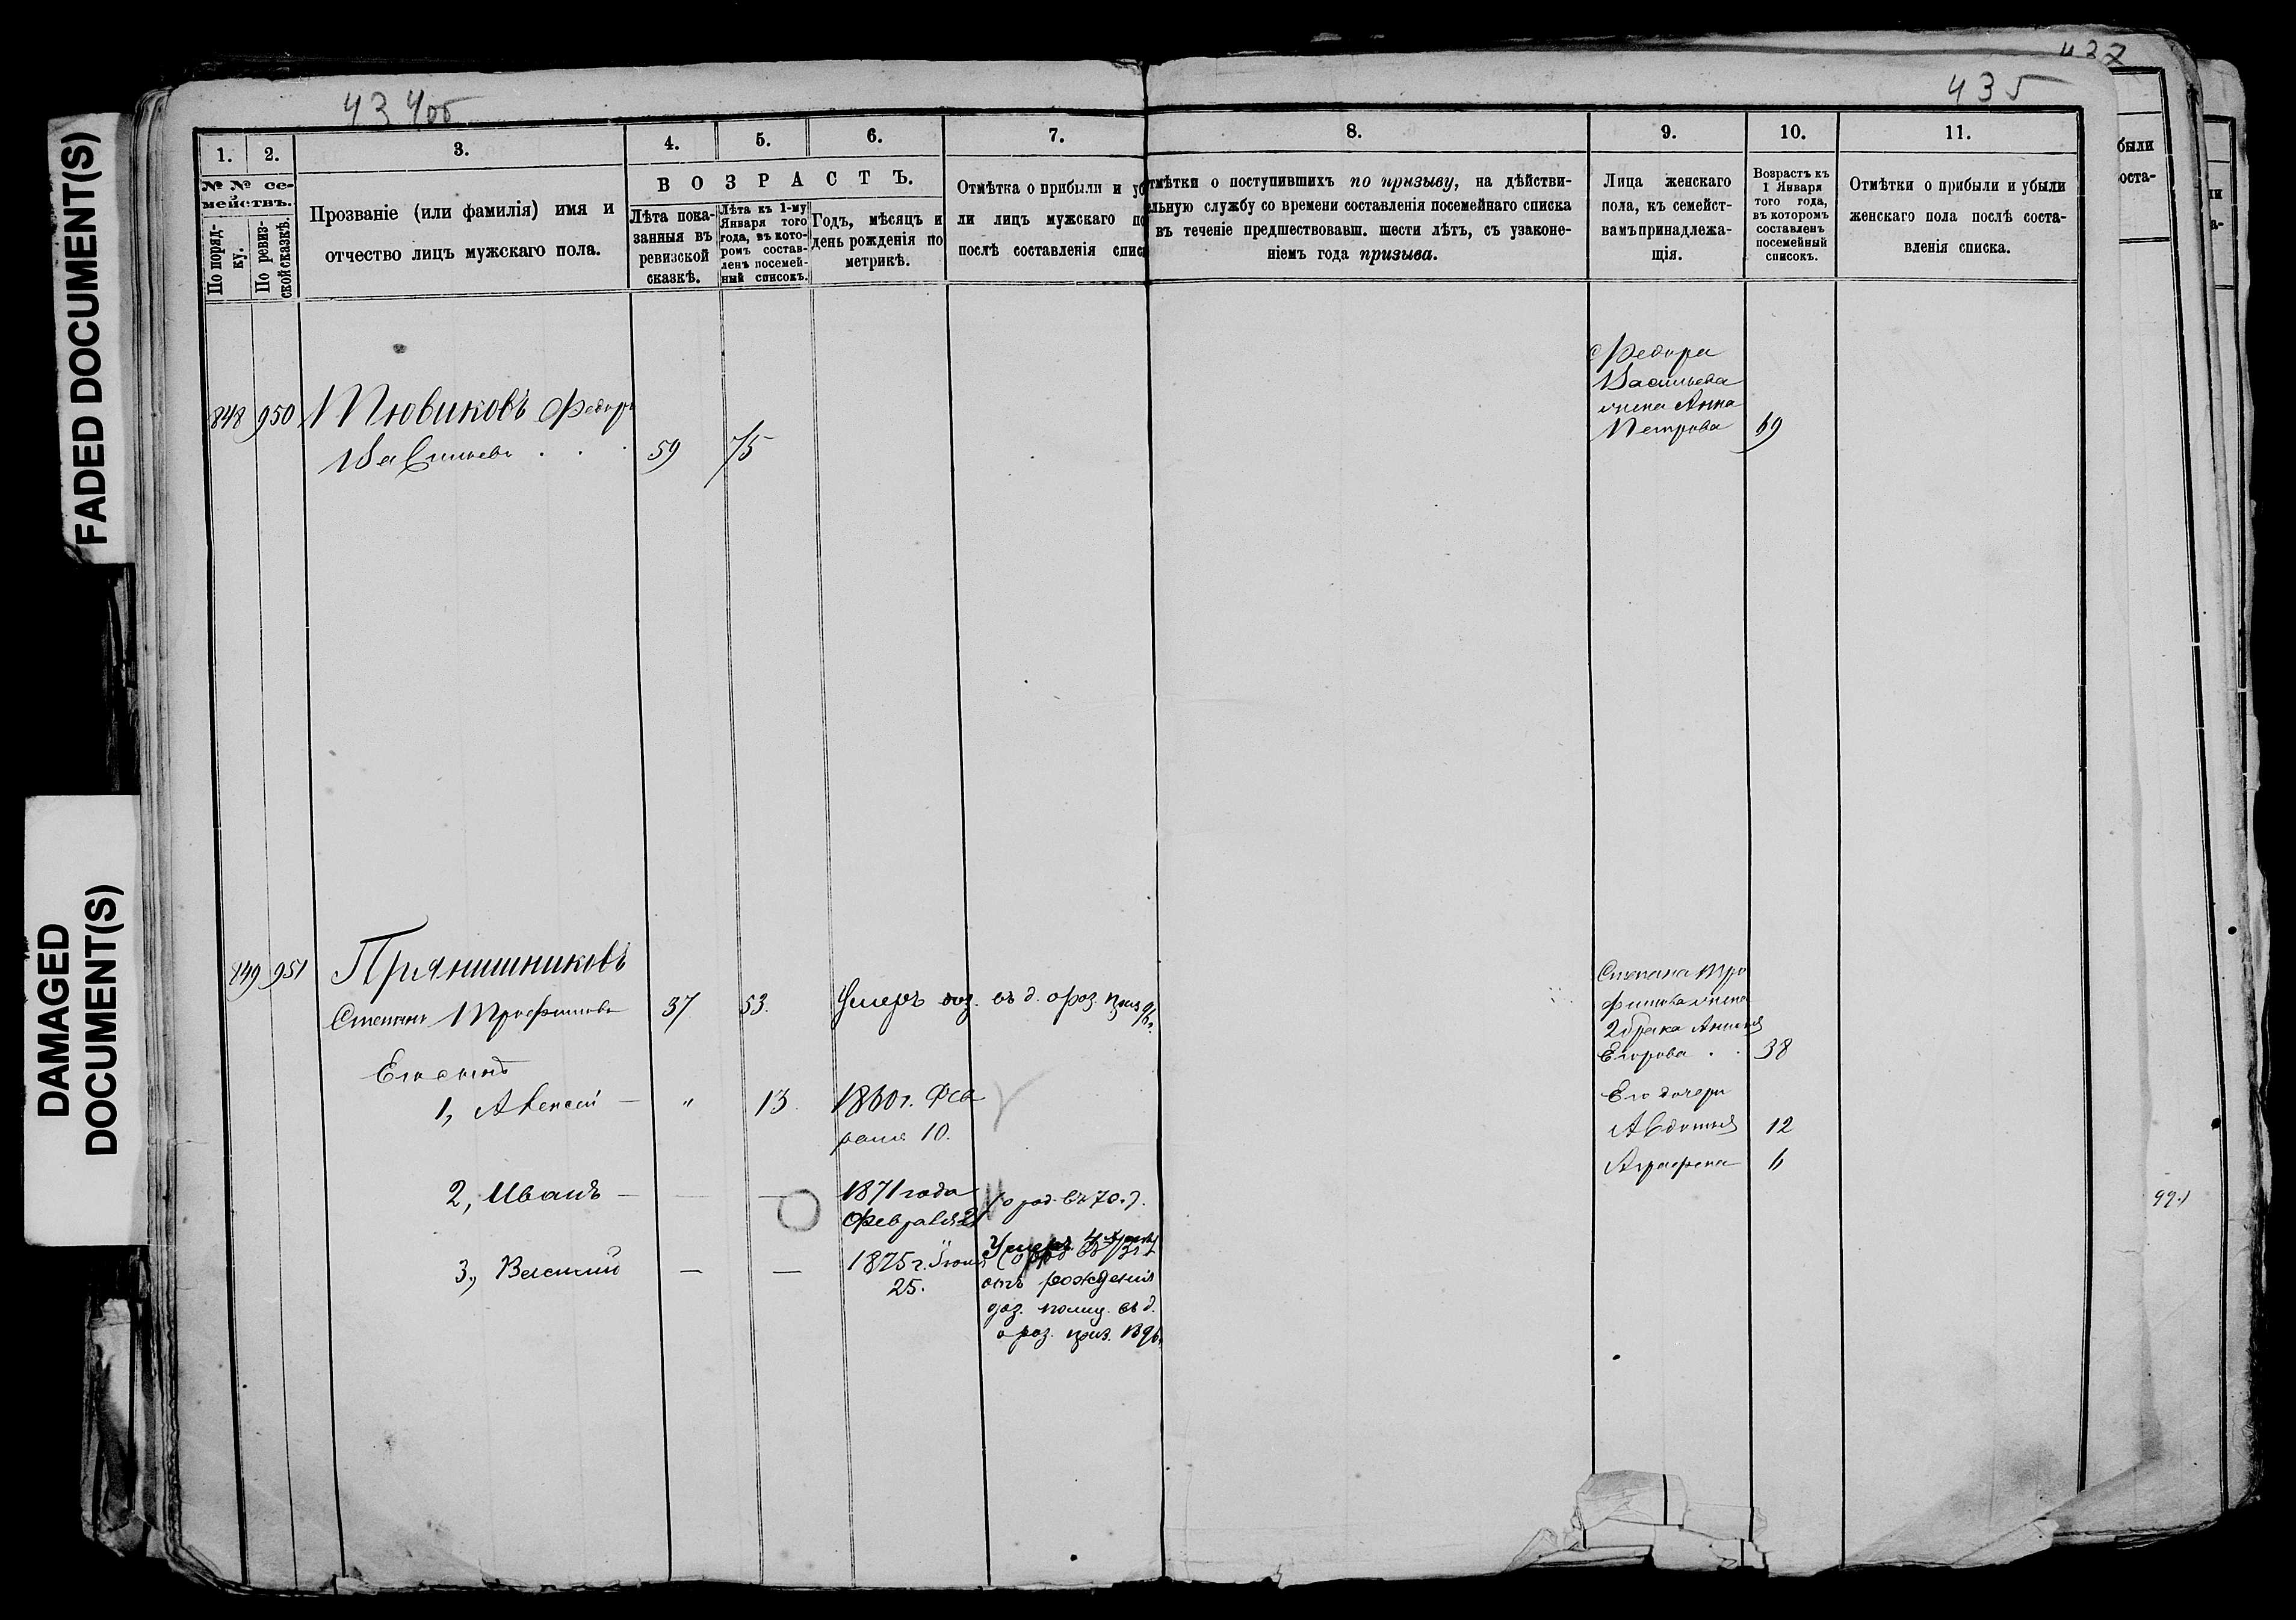 FADED DOCUMENT(S)
DAMAGED
DOCUMENT(S)
434об
435
437
1.
2.
3.
4.
5.
6.
7.
8.
9.
10.
11.
№ № се-
мействъ.
По поряд-
ку.
По ревиз-
ской сказкѣ.
Прозваніе (или фамилія) имя и
отчество лицъ мужскаго пола.
ВОЗРАСТЪ.
Лѣта пока-
занныя въ
ревизской
сказкѣ.
Лѣта къ 1-му
Января того
года, въ кото-
ромъ состав-
ленъ посемей-
ный списокъ.
Годъ, мѣсяцъ и
день рожденія по
метрикѣ.
Отмѣтка о прибыли и уб
ли лицъ мужскаго по
послѣ составленія спис
тмѣтки о поступившихъ по призыву, на дѣйстви-
ельную службу со времени составленія посемейнаго списка
въ теченіе предшествовавш. шести лѣтъ, съ узаконе-
ніемъ года призыва.
Лица женскаго
пола, къ семейст-
вамъ принадлежа-
щія.
Возрастъ къ
1 Января
того года,
въ которомъ
составленъ
посемейный
списокъ.
Отмѣтки о прибыли и убыли
женскаго пола послѣ соста-
вленія списка.
были
оста-
848 950 Тювиковъ Федоръ
Васильевъ . . . 59 75
Федора
Васильева
жена Анна
Петрова 69
849 951 Прянишниковъ
Степанъ Трофимовъ 37 53. Умеръ
Его сынъ
1, Алексѣй — " 13. 1860 г. Фев
раля 10.
2, Иванъ — — — 1871 года
Февраля 21
(о род. въ 70.).
3, Василий — — 1875 г. Іюня
25.
Умеръ
отъ рожденія
Степана Тро
фимова жена
2 брака
Егорова . . 38
Его дочери
Авдотья 12
Аграфена 6
99.)